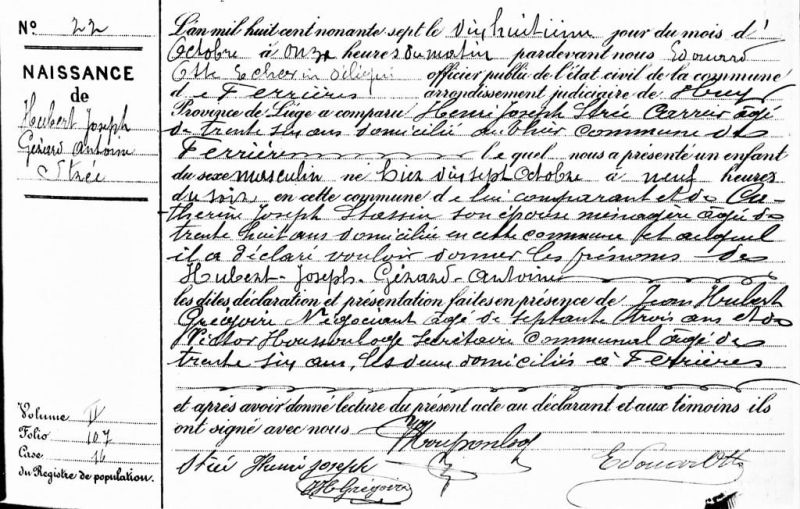 N° 22
NAISSANCE
de
Hubert Joseph
Gérard Antoine
Strée
Volume II
Folio 107
Case 16
du Registre de population.
L'an mil huit cent nonante sept le dix huitième jour du mois d'
Octobre à onze heures du matin pardevant nous Edouard
Otte Echevin délégué officier public de l'état civil de la commune
de Ferrières arrondissement judiciaire de Huy
Province de Liége a comparu Henri Joseph Strée Carrier âgé
de trente six ans domicilié commune de
Ferrières lequel nous a présenté un enfant
du sexe masculin né hier dix sept Octobre à neuf heures
du soir en cette commune de lui comparant et de Ca-
therine Joseph Stassin son épouse ménagère âgée de
trente huit ans domiciliée en cette commune et auquel
il a déclaré vouloir donner les prénoms de
Hubert-Joseph-Gérard-Antoine
les dites déclaration et présentation faites en présence de Jean Hubert
Grégoire Négociant âgé de septante trois ans et de
Victor Houssonloge Secrétaire Communal âgé de
trente six ans, les deux domiciliés à Ferrières
et après avoir donné lecture du présent acte au déclarant et aux témoins ils
ont signé avec nous
Strée Henri Joseph
Edouard Otte
JH Grégoire